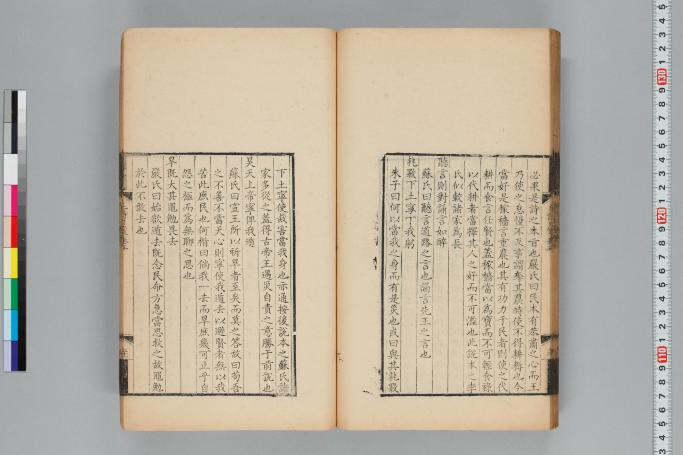 必果是詩之本旨也嚴氏曰民本有恭肅之心而王
乃使之怠慢不及事謂奪其農時使不得耕耨也今
當好是稼穡言重農也其有功力于民者則使之代
耕而食言任賢也蓋稼穡當以為寶而不可輕食祿
以代耕者當擇其人之好而不可濫也此說本之李
氏似較諸家為長
聽言則對誦言如醉
蘇氏曰聽言道路之言也誦言先王之言也
耗斁下土寧丁我躬
朱子曰何以當我之身而有是災也或曰與其耗斁
下土寧使烖害當我身也亦通按後說本之蘇氏諸
家多從之蓋得古帝王遇災自責之意勝于前說也
昊天上帝寧俾我遯
蘇氏曰宣王所以祈旱者至矣而莫之答故曰苟吾
之不善不當天心則寧使我遯去以避賢者無以我
苦此庶民也何楷曰倘我一去而旱庶幾可止乎自
怨之極而為無聊之思也
旱既大甚黽勉畏去
嚴氏曰始欲遯去既念民命方急當思救之故黽勉
於此不敢去也